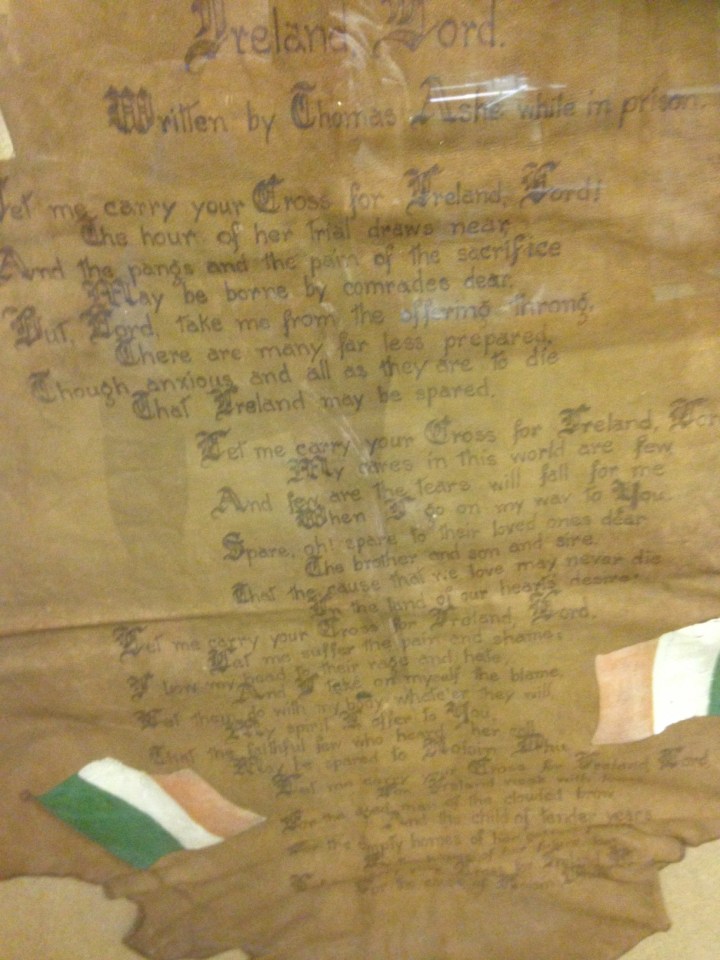 Ireland, Lord.
Written by Thomas Ashe while in prison.
Let me carry your Cross for Ireland, Lord!
The hour of her trial draws near,
And the pangs and the pain of the sacrifice
May be borne by comrades dear.
But, Lord, take me from the offering throng,
There are many far less prepared,
Though anxious and all as they are to die
That Ireland may be spared.
Let me carry your Cross for Ireland, Lord
My cares in this world are few
And few are the tears will fall for me
When I go on my way to You.
Spare, oh! spare to their loved ones dear
The brother and son and sire.
That the cause that we love may never die
In the land of our heart's desire!
Let me carry your Cross for Ireland, Lord.
Let me suffer the pain and shame;
I bow my head to their rage and hate,
And I take on myself the blame.
Let them do with my body whate'er they will,
My spirit I offer to You,
That the faithful few who heard her call
May be spared to Roisin
Let me carry your Cross for Ireland, Lord,
For Ireland weak with
For the aged man of the clouded brow
And the child of tender years
For the empty homes of her
for Ireland
For the